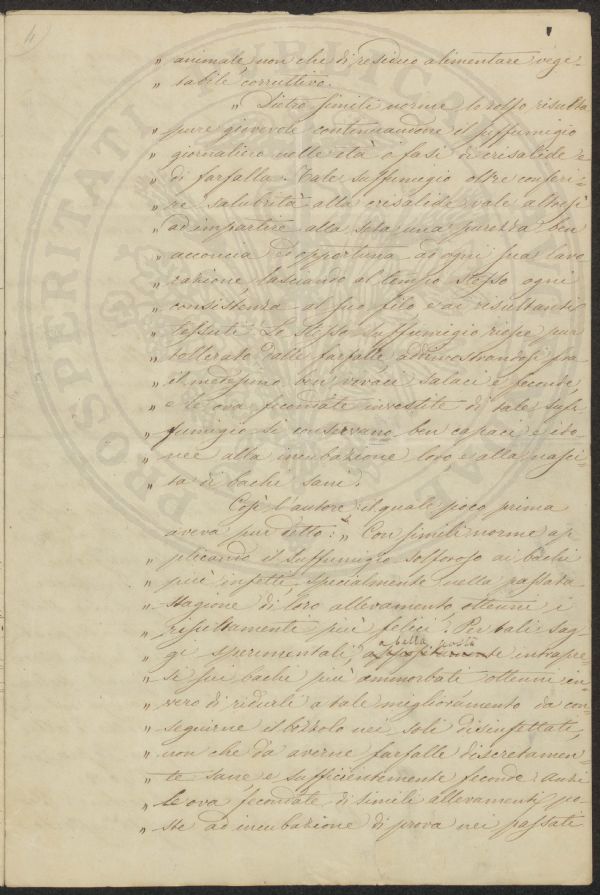 4
" animale non che di residuo alimentare vege-
" tabile corruttivo.
" " Dietro simili norme, lo zolfo risulta
" pure giovevole continuandone il suffumigio
" giornaliero nelle età o fasi di crisalide e
" di farfalla. Tale suffumigio oltre conferi-
" re salubrità alla crisalide vale altresì
" ad impartire alla seta una purezza ben
" acconcia ed opportuna ad ogni sua lavo
" razione lasciando al tempo stesso ogni
" consistenza al suo filo e ai risultanti
" tessuti. Lo stesso suffumigio riesce pur
" tollerato dalle farfalle addimostrandosi fra
" il medesimo ben vivaci salaci e feconde,
" e le ova fecondate investite di tale suf-
" fumigio si conservano ben capaci e ido-
" nee alla incubazione loro, e alla nasci-
" ta di bachi sani.
Così l'autore; il quale poco prima
aveva pur detto: " Con simili norme ap-
" plicando il suffumigio solforoso ai bachi
" più infetti specialmente nella passata
" stagione di loro allevamento, ottenni i
" risultamenti più felici. Per tali sag-
" gi sperimentali, a bella posta intrape-
" si sui bachi più ammorbati ottenni in-
" vero di ridurli a tale miglioramento da con-
" seguirne il bozzolo nei soli disinfettati,
" non che da averne farfalle discretamen-
" te sane e sufficientemente feconde. Anzi
" le ova fecondate di simili allevamenti po-
" ste ad incubazione di prova nei passati
PROSPERITATI PUBLICAE